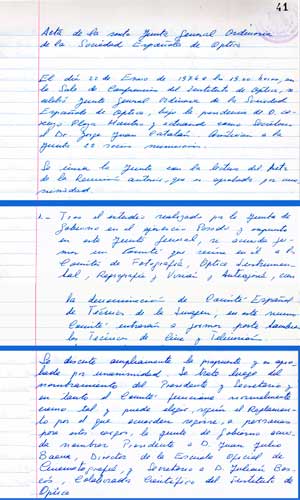 41
Acta de la sexta Junta General Ordinaria
de la Sociedad Española de Optica
El día 22 de Enero de 1974 a las 19.00 horas, en
la Sala de Conferencias del Instituto de Optica, se
celebró Junta General Ordinaria de la Sociedad
Española de Optica, bajo la presidencia de D.
y actuando como Secretario
el Dr. Jorge Juan Catalán. Asistieron a la
Junta 22 socios numerarios.
Se inicia la Junta con la lectura del Acta
de la Reunión anterior, que es aprobada por una-
nimidad.
1.- Tras el estudio realizado por la Junta de
Gobierno en el ejercicio Pasado y expuesto
en esta Junta General, se acuerda for-
mar un Comité que reúna en él a los
Comités de Fotografía, Optica Instrumen-
tal, Reprografía y Visión y con
la denominación de Comité Español
de Técnicas de la Imagen, en este nuevo
Comité entrarán a formar parte también
los Técnicos de Cine y Televisión.
Se discute ampliamente la propuesta y es apro-
bada por unanimidad. Se trata luego del
nombramiento del Presidente y Secretario y
en tanto el Comité funcione normalmente
como tal y pueda elegir, según el Reglamen-
to por el que acuerden regirse, a personas
para estos cargos, la Junta de Gobierno acuer-
da nombrar Presidente a D. Juan Julio
Baena, Director de la Escuela Oficial de
Cinematografía, y Secretario a D. Julián
Colaborador Científico del Instituto de
Optica